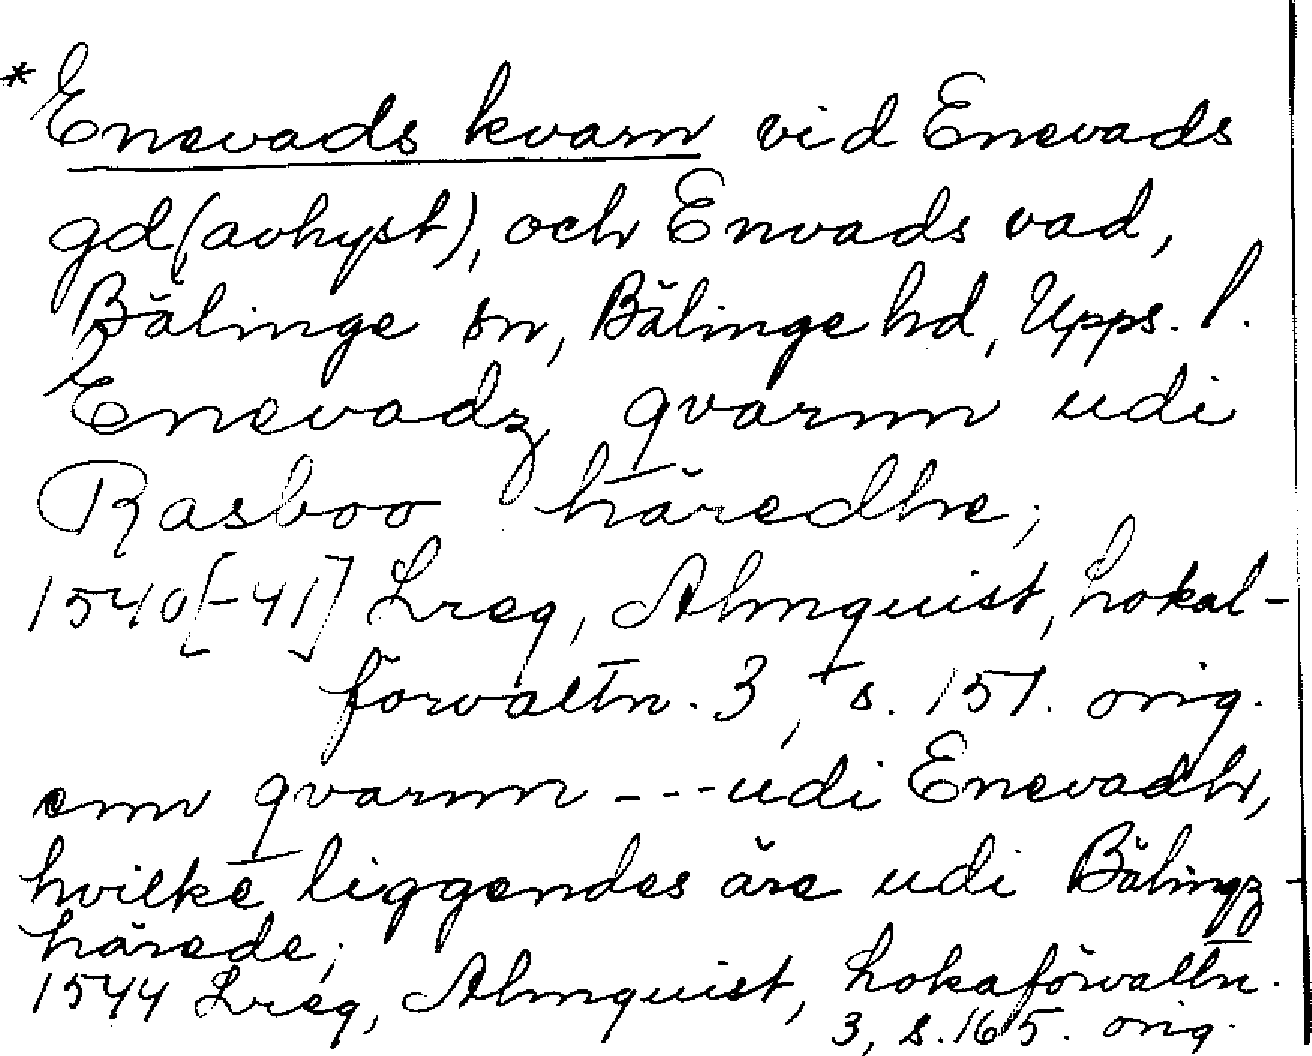 *Enevads kvarn vid Enevads
gd (avhyst), och Envads vad,
Bälinge sn, Bälinge hd, Upps. l.
Enevadz qvarnn udi
Rasboo häredhe;
1540[-41] Lreg, Almquist, Lokal-
förvaltn. 3, s. 151. orig.
enn qvarnn --- udi Enevadh,
hvilke liggendes äre udi Bälingz-
härede;
1544 Lreg, Almquist, Lokaförvaltn.
3, s. 165. orig.